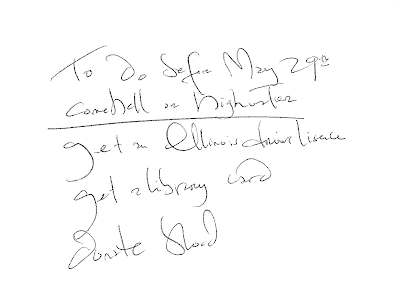 To Do before May 29th
come hell or high water
get an Illinois driver liscence
get a library card
donate blood